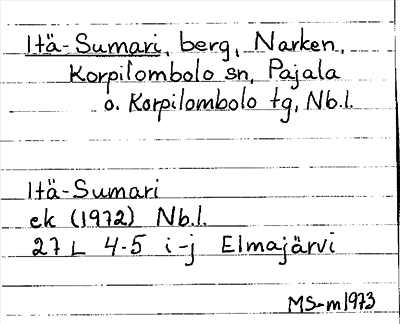 Itä-Sumari, berg, Narken,
Korpilombolo sn, Pajala
o. Korpilombolo tg, Nb.l.
Itä-Sumari
ek (1972) Nb.l.
27 L 4-5 i-j Elmajärvi
MS-m1973